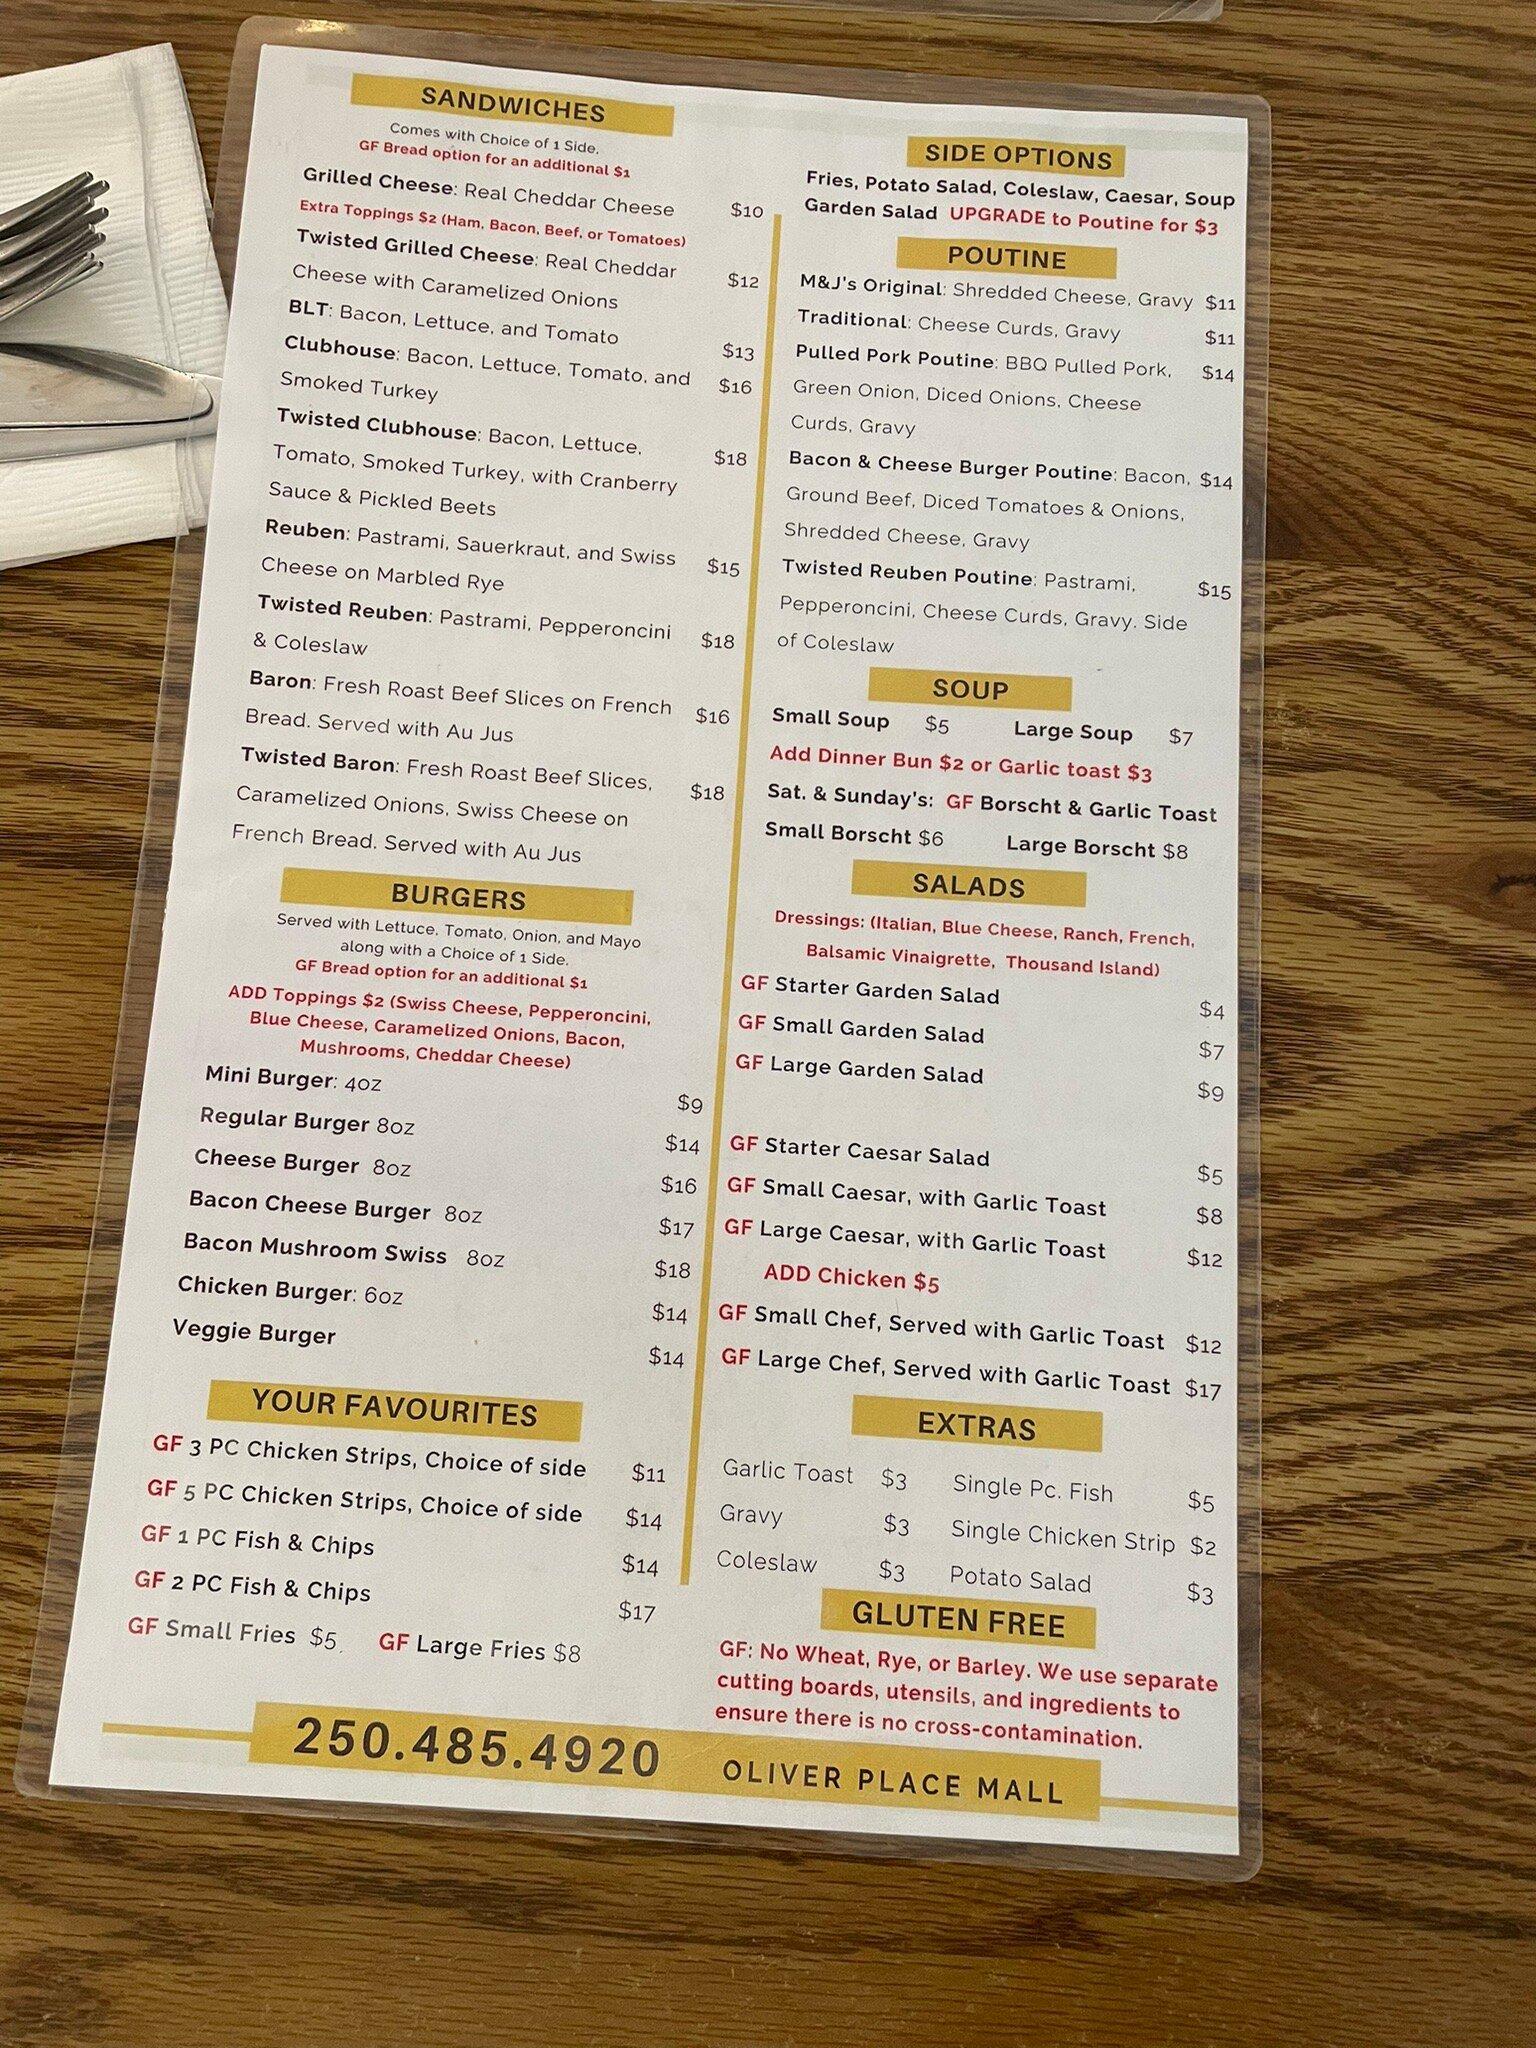 SANDWICHES
Comes with Choice of 1 Side.
GF Bread option for an additional $1
Grilled Cheese: Real Cheddar Cheese $10
Extra Toppings $2 (Ham, Bacon, Beef, or Tomatoes)
Twisted Grilled Cheese: Real Cheddar $12
Cheese with Caramelized Onions
BLT: Bacon, Lettuce, and Tomato $13
Clubhouse: Bacon, Lettuce, Tomato, and $16
Smoked Turkey
Twisted Clubhouse: Bacon, Lettuce, $18
Tomato, Smoked Turkey, with Cranberry
Sauce & Pickled Beets
Reuben: Pastrami, Sauerkraut, and Swiss $15
Cheese on Marbled Rye
Twisted Reuben: Pastrami, Pepperoncini $18
& Coleslaw
Baron: Fresh Roast Beef Slices on French $16
Bread. Served with Au Jus
Twisted Baron: Fresh Roast Beef Slices, $18
Caramelized Onions, Swiss Cheese on
French Bread. Served with Au Jus
BURGERS
Served with Lettuce, Tomato, Onion, and Mayo
along with a Choice of 1 Side.
GF Bread option for an additional $1
ADD Toppings $2 (Swiss Cheese, Pepperoncini,
Blue Cheese, Caramelized Onions, Bacon,
Mushrooms, Cheddar Cheese)
Mini Burger: 4oz $9
Regular Burger 8oz $14
Cheese Burger 8oz $16
Bacon Cheese Burger 8oz $17
Bacon Mushroom Swiss 8oz $18
Chicken Burger: 6oz $14
Veggie Burger $14
YOUR FAVOURITES
GF 3 PC Chicken Strips, Choice of side $11
GF 5 PC Chicken Strips, Choice of side $14
GF 1 PC Fish & Chips $14
GF 2 PC Fish & Chips $17
GF Small Fries $5 GF Large Fries $8
SIDE OPTIONS
Fries, Potato Salad, Coleslaw, Caesar, Soup
Garden Salad UPGRADE to Poutine for $3
POUTINE
M&J's Original: Shredded Cheese, Gravy $11
Traditional: Cheese Curds, Gravy $11
Pulled Pork Poutine: BBQ Pulled Pork, $14
Green Onion, Diced Onions, Cheese
Curds, Gravy
Bacon & Cheese Burger Poutine: Bacon, $14
Ground Beef, Diced Tomatoes & Onions,
Shredded Cheese, Gravy
Twisted Reuben Poutine: Pastrami, $15
Pepperoncini, Cheese Curds, Gravy. Side
of Coleslaw
SOUP
Small Soup $5 Large Soup $7
Add Dinner Bun $2 or Garlic toast $3
Sat. & Sunday's: GF Borscht & Garlic Toast
Small Borscht $6 Large Borscht $8
SALADS
Dressings: (Italian, Blue Cheese, Ranch, French,
Balsamic Vinaigrette, Thousand Island)
GF Starter Garden Salad $4
GF Small Garden Salad $7
GF Large Garden Salad $9
GF Starter Caesar Salad $5
GF Small Caesar, with Garlic Toast $8
GF Large Caesar, with Garlic Toast $12
ADD Chicken $5
GF Small Chef, Served with Garlic Toast $12
GF Large Chef, Served with Garlic Toast $17
EXTRAS
Garlic Toast $3 Single Pc. Fish $5
Gravy $3 Single Chicken Strip $2
Coleslaw $3 Potato Salad $3
GLUTEN FREE
GF: No Wheat, Rye, or Barley. We use separate
cutting boards, utensils, and ingredients to
ensure there is no cross-contamination.
250.485.4920 OLIVER PLACE MALL